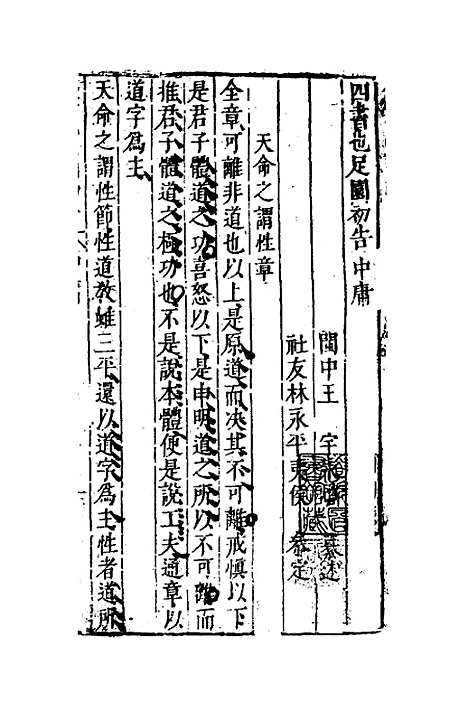 四書也足園初告中庸
閩中王 宇 纂述
社友林永平 叅定
天命之謂性章
全章可離非道也以上是原道而决其不可離戒慎以下
是君子體道之功喜怒以下是申明道之所以不可離而
推君子體道之極功也不是說本體便是說工夫通章以
道字爲主
天命之謂性節性道教雖三平還以道字爲主性者道所